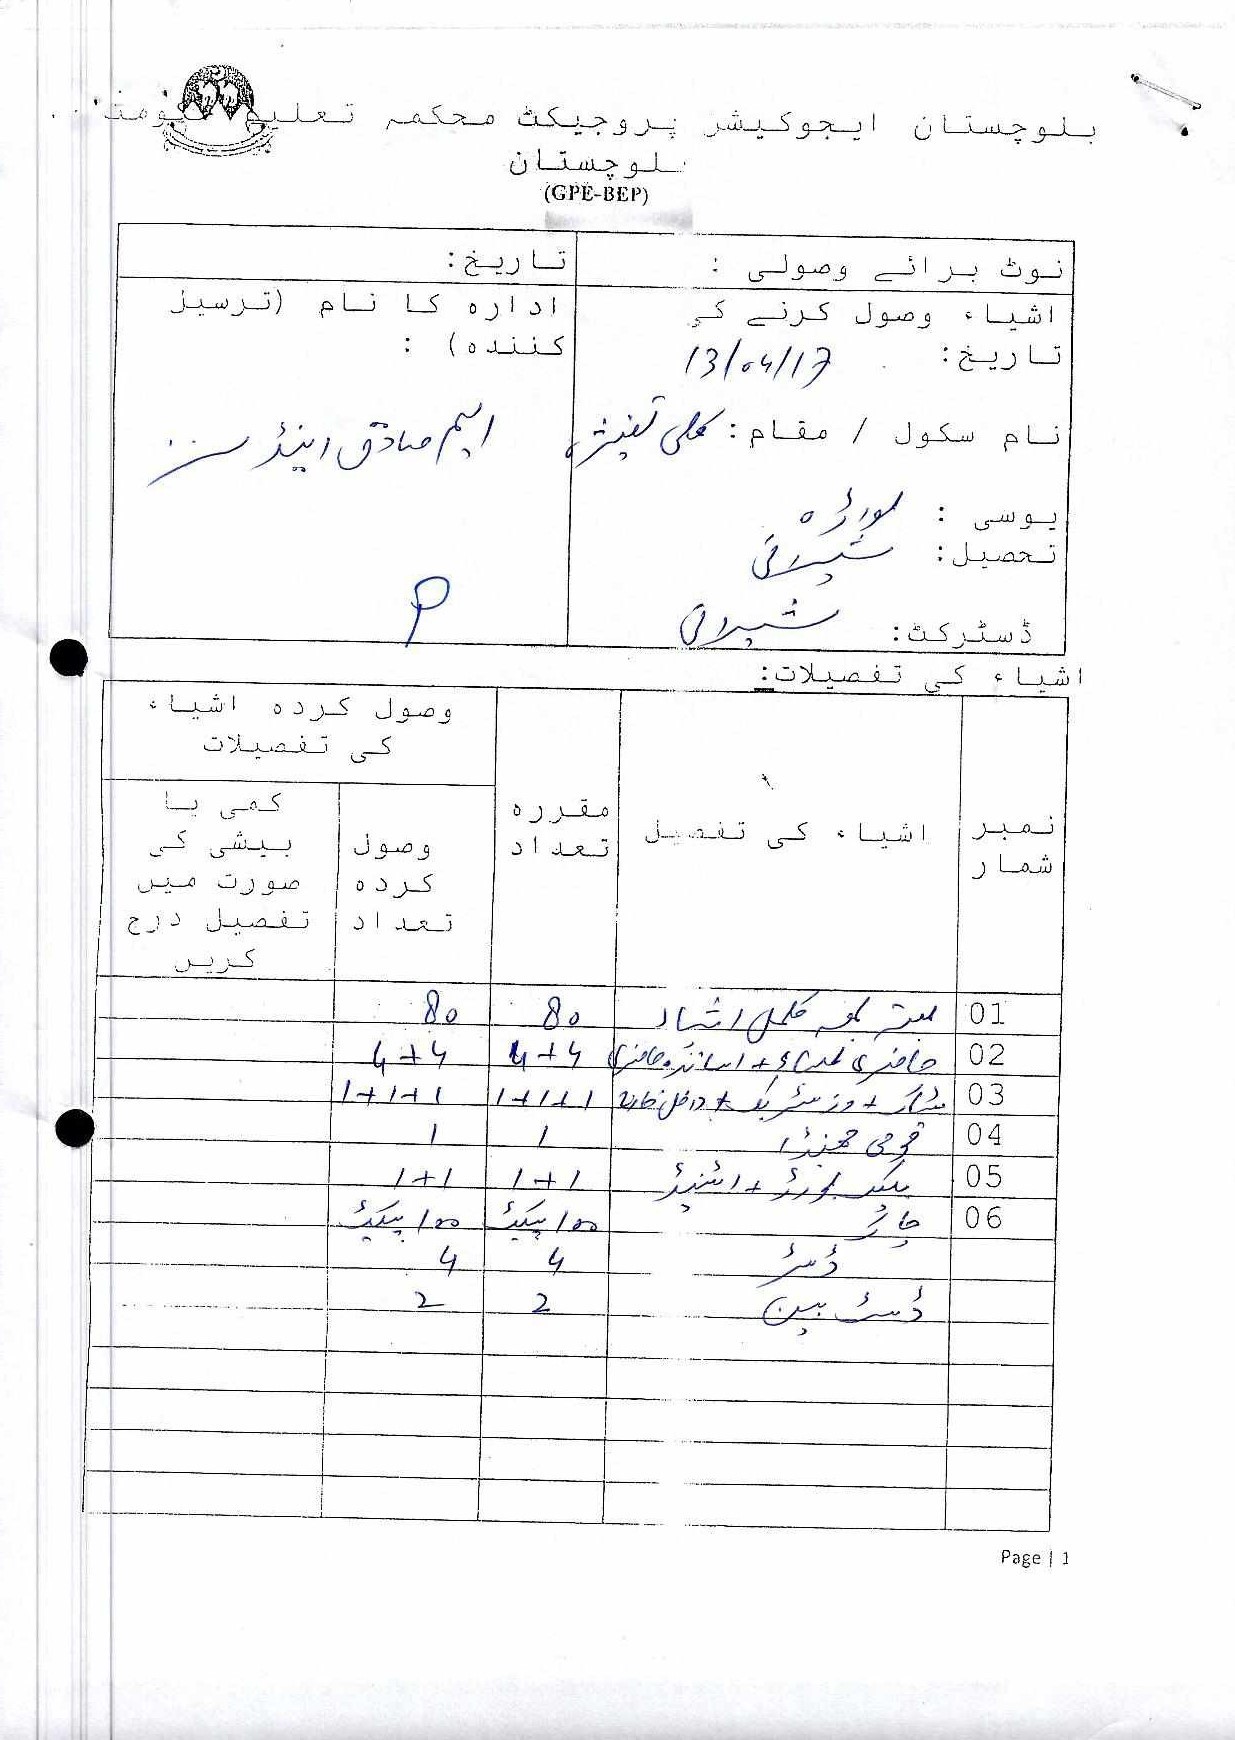 بلوچستان ایجوکیشر پروجیکٹ محکمہ تعلیم
بلوچستان
(GPE-BEP)
نوٹ برائے وصولی :
تاریخ:
اشیاء وصول کرنے کی
تاریخ: 13/04/17
ادارہ کا نام (ترسیل
کنندہ) :
نام سکول / مقام: کلی
ایم صادق اینڈ سنز
یوسی :
تحصیل: شیرانی
ڈسٹرکٹ: شیرانی
اشیاء کی تفصیلات:
نمبر شمار
اشیاء کی تفصیل
مقررہ تعداد
وصول کردہ اشیاء کی تفصیلات
وصول کردہ تعداد
کمی یا بیشی کی صورت میں تفصیل درج کریں
01 مکمل اشیاء 80 80
02 حاضری + اساتذہ حاضری 4+4 4+4
03 سٹاک + وزیٹر بک + داخل خارج 1+1+1 1+1+1
04 قومی جھنڈا 1 1
05 بلیک بورڈ + اسٹینڈ 1+1 1+1
06 چاک 100 پیکٹ 100 پیکٹ
ڈسٹر 4 4
ڈسٹ بین 2 2
Page | 1